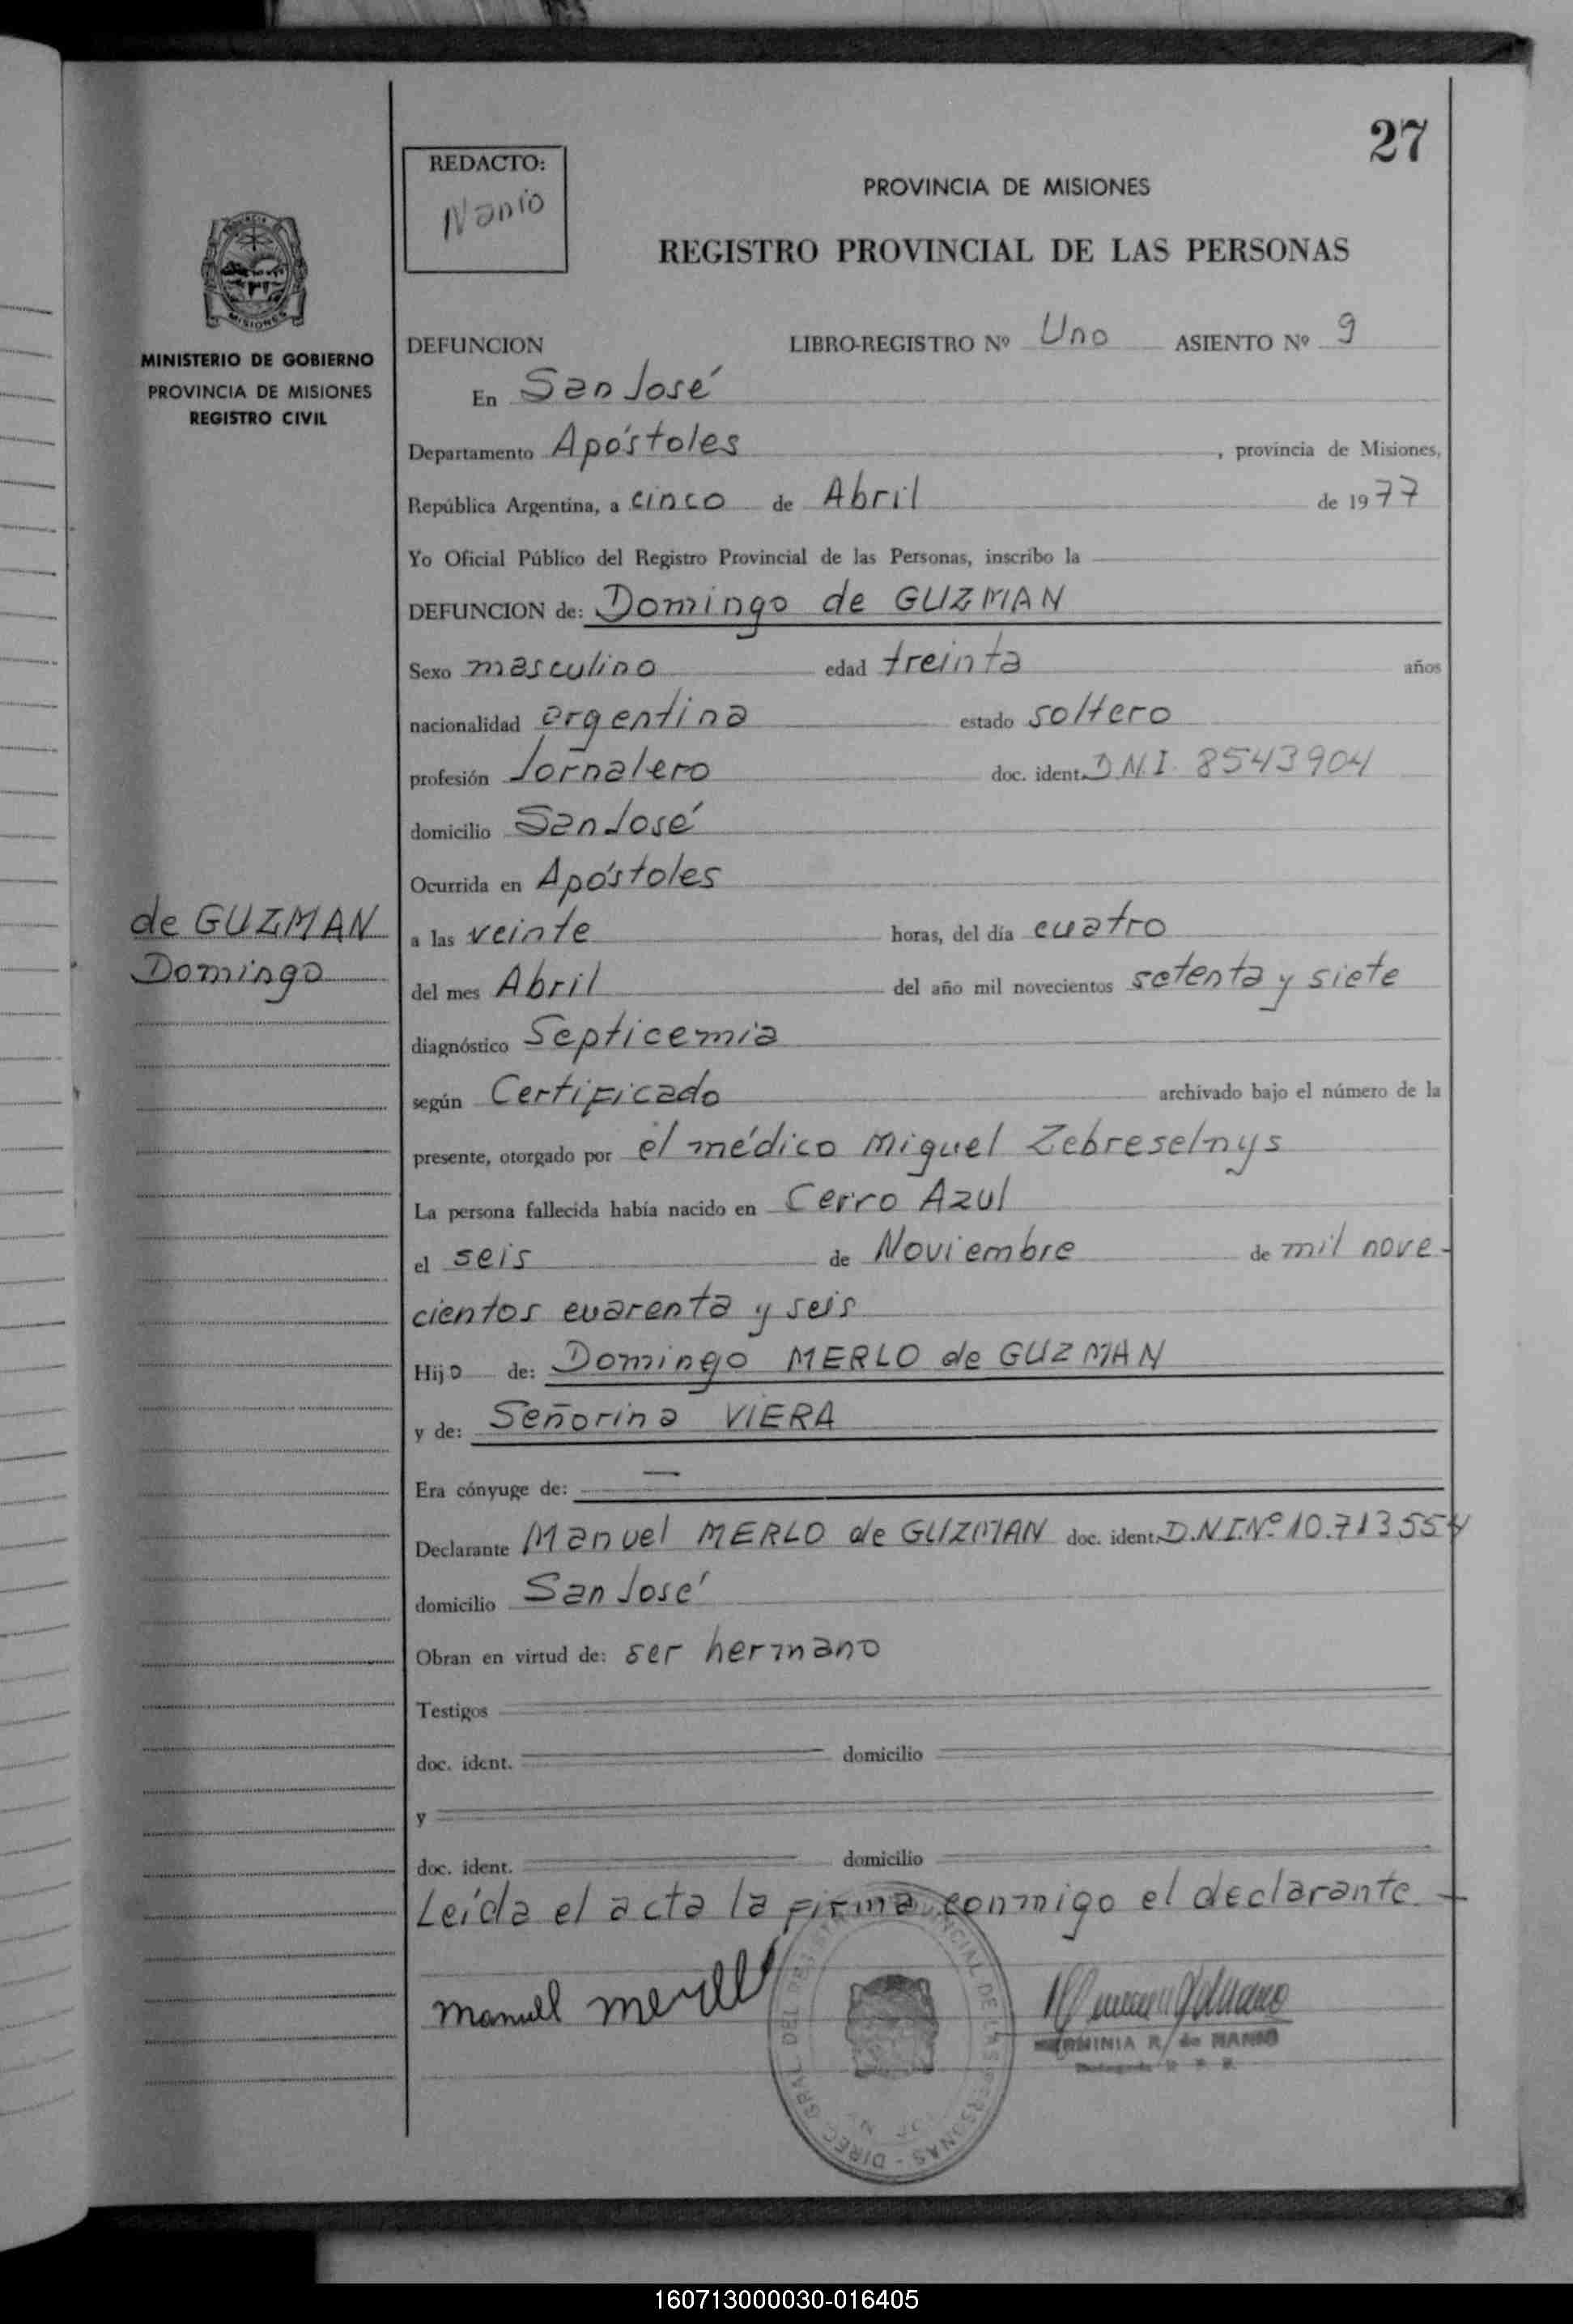 27
REDACTO:
Nanio
PROVINCIA DE MISIONES
REGISTRO PROVINCIAL DE LAS PERSONAS
MISIONES
MINISTERIO DE GOBIERNO
PROVINCIA DE MISIONES
REGISTRO CIVIL
DEFUNCION LIBRO-REGISTRO Nº Uno ASIENTO Nº 9
En San José
Departamento Apóstoles, provincia de Misiones,
República Argentina, a cinco de Abril de 1977
Yo Oficial Público del Registro Provincial de las Personas, inscribo la
DEFUNCION de: Domingo de GUZMAN
Sexo masculino edad treinta años
nacionalidad argentina estado soltero
profesión Jornalero doc. ident. D.N.I. 8543904
domicilio San José
Ocurrida en Apóstoles
de GUZMAN
Domingo
a las veinte horas, del día cuatro
del mes Abril del año mil novecientos setenta y siete
diagnóstico Septicemia
según Certificado archivado bajo el número de la
presente, otorgado por el médico Miguel Zebreselnys
La persona fallecida había nacido en Cerro Azul
el seis de Noviembre de mil nove-
cientos cuarenta y seis
Hijo de: Domingo MERLO de GUZMAN
y de: Señorina VIERA
Era cónyuge de: —
Declarante Manuel MERLO de GUZMAN doc. ident. D.N.I.Nº 10.713554
domicilio San José
Obran en virtud de: ser hermano
Testigos
doc. ident. domicilio
y
doc. ident. domicilio
Leída el acta la firma conmigo el declarante
manuel
DIREC. GRAL. DEL PERSONAS
HERMINIA R. de NANIO
160713000030-016405